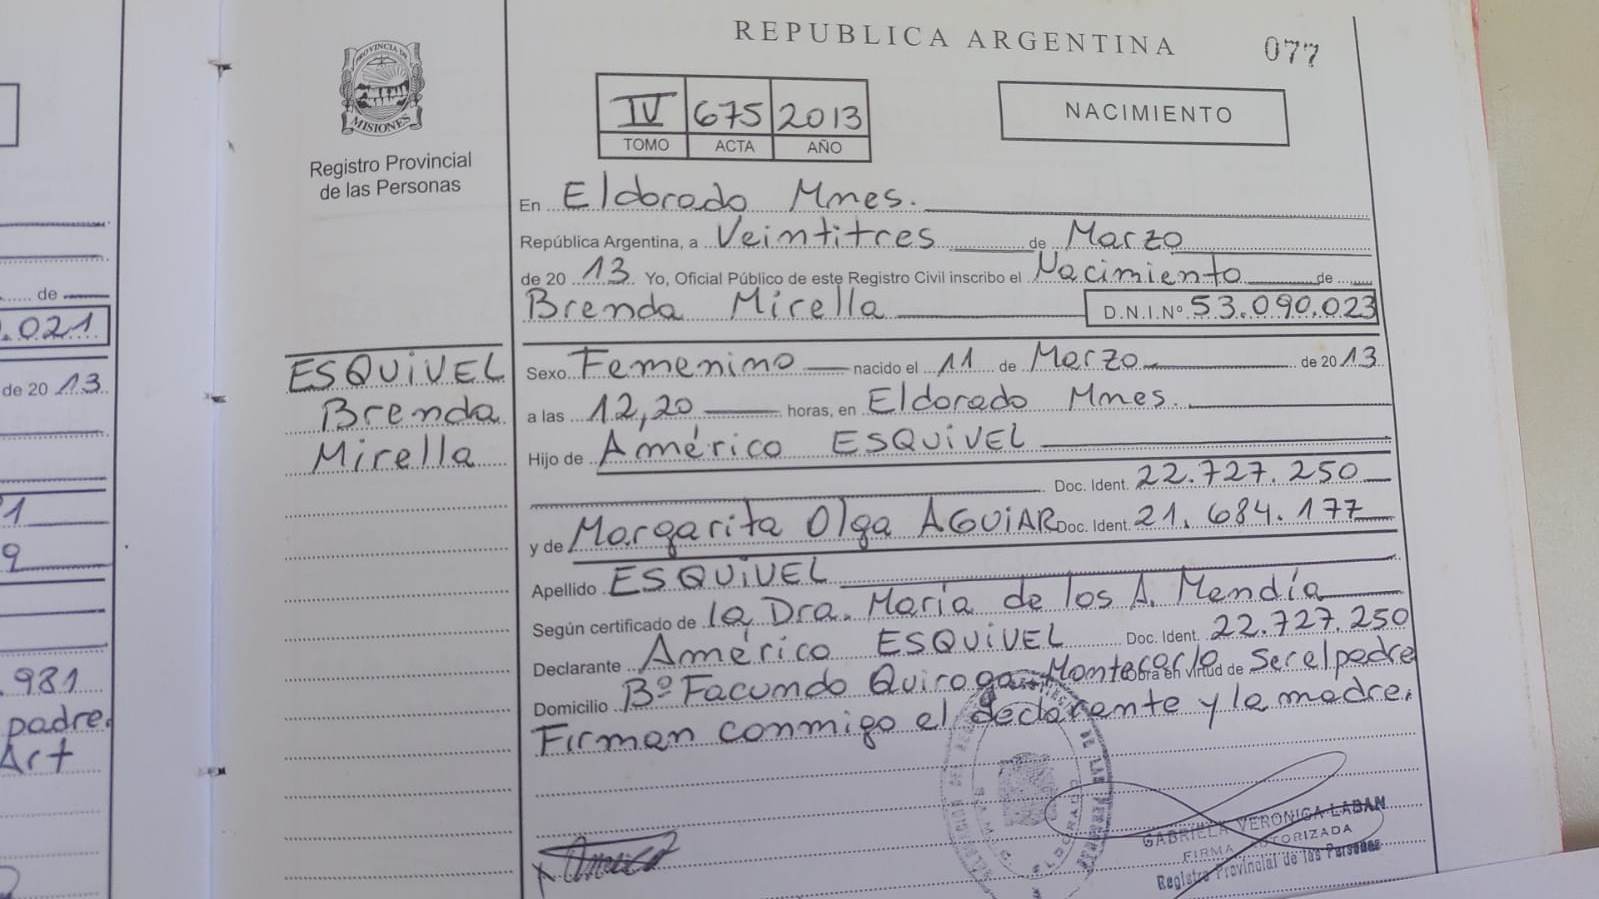 de
.021
de 20 13
1
9
.981
padre.
Art
PROVINCIA DE
MISIONES
Registro Provincial
de las Personas
ESQUIVEL
Brenda
Mirella
REPUBLICA ARGENTINA
077
IV 675 2013
TOMO ACTA AÑO
NACIMIENTO
En Eldorado Mnes.
República Argentina, a Veintitres de Marzo
de 20 13 Yo, Oficial Público de este Registro Civil inscribo el Nacimiento de
Brenda Mirella D.N.I.Nº 53.090.023
Sexo Femenino nacido el 11 de Marzo de 20 13
a las 12,20 horas, en Eldorado Mnes.
Hijo de Américo ESQUIVEL
Doc. Ident. 22.727.250
y de Margarita Olga AGUIAR Doc. Ident. 21.684.177
Apellido ESQUIVEL
Según certificado de la Dra. María de los A. Mendía
Declarante Américo ESQUIVEL Doc. Ident. 22.727.250
Domicilio Bº Facundo Quiroga-Montecarlo Obra en virtud de ser el padre
Firman conmigo el declarante y la madre.
DE LAS PERSONAS
ELDORADO
GABRIELA VERONICA LABAN
FIRMA AUTORIZADA
Registro Provincial de las Personas